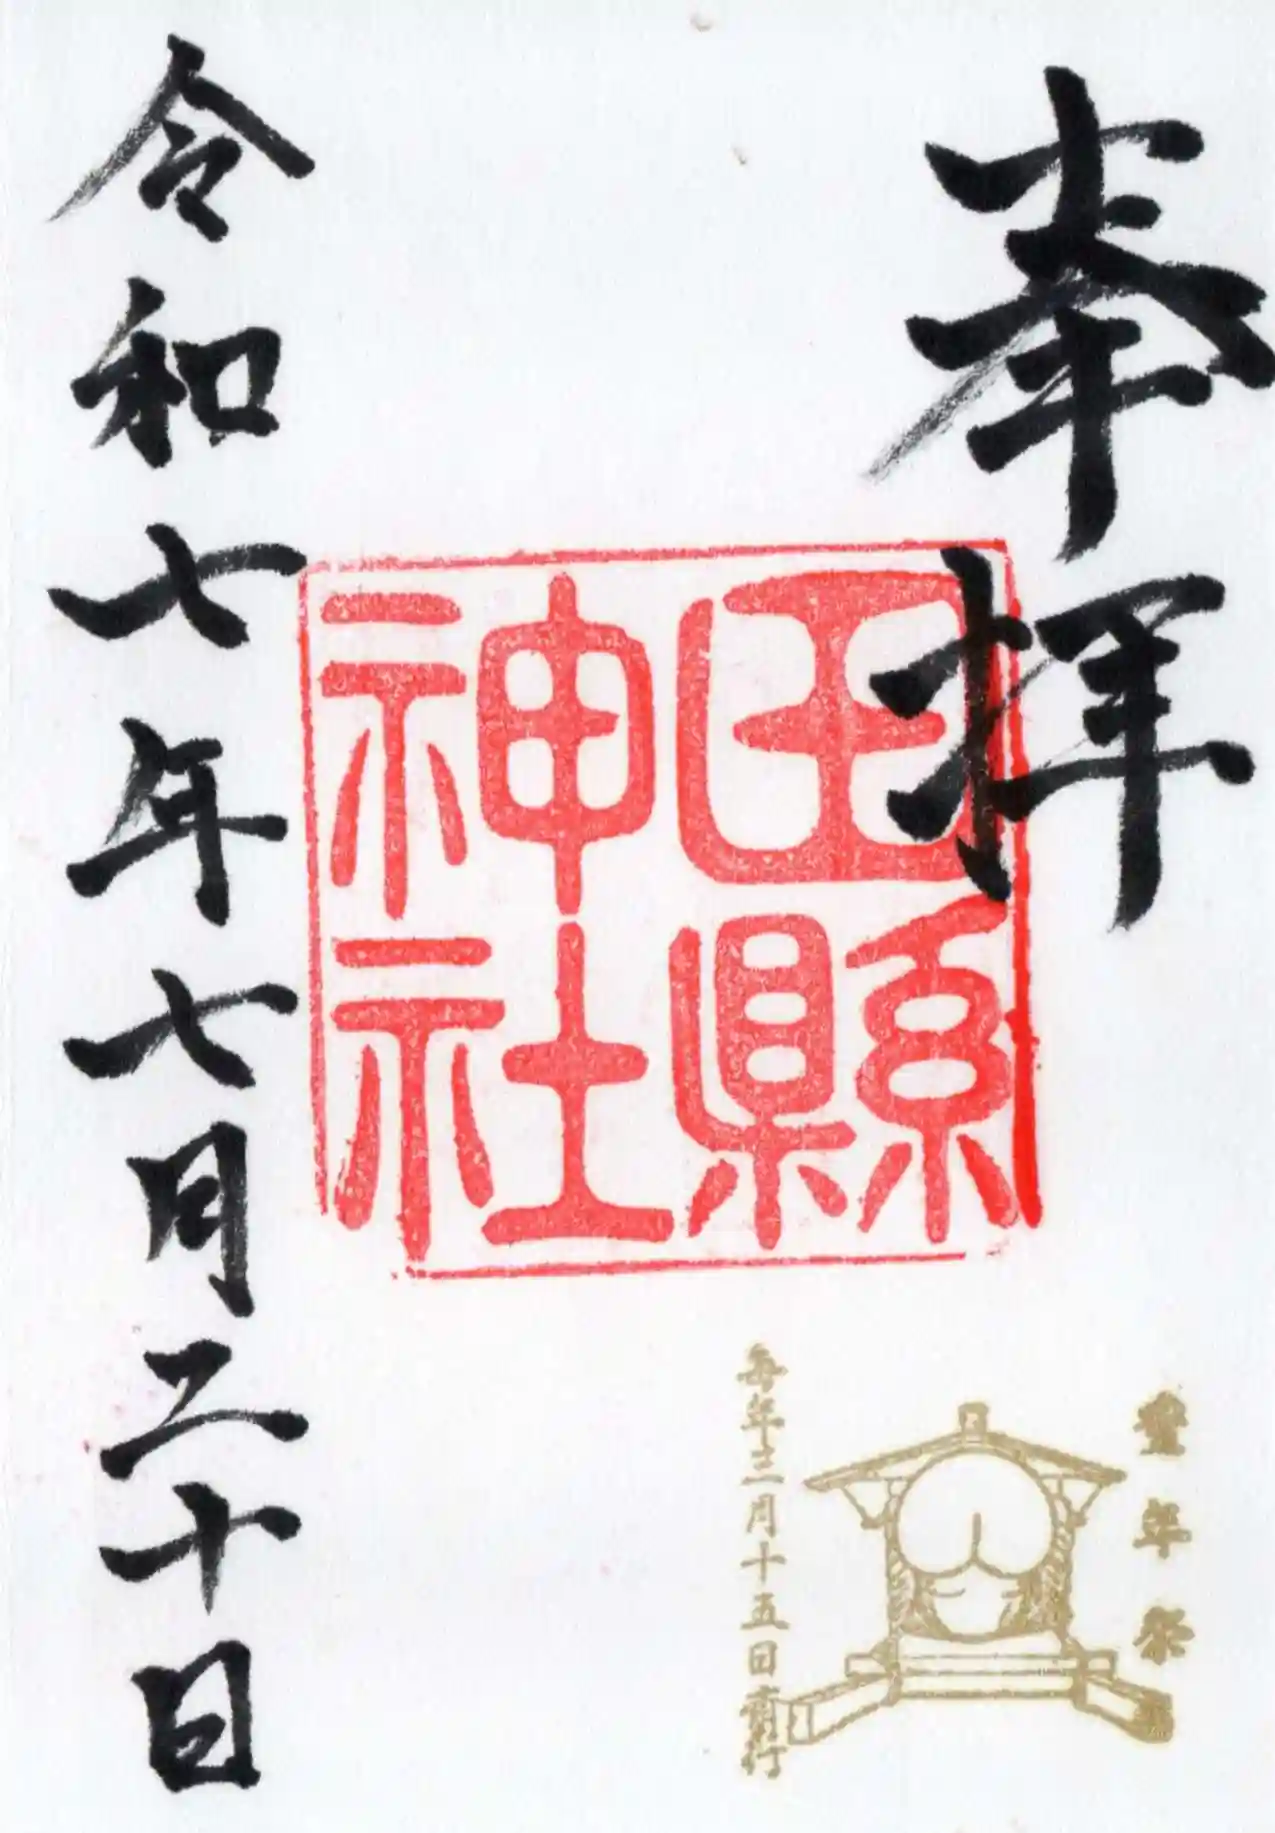 奉拝
田縣
神社
豊年祭
毎年三月十五日斎行
令和七年七月二十日